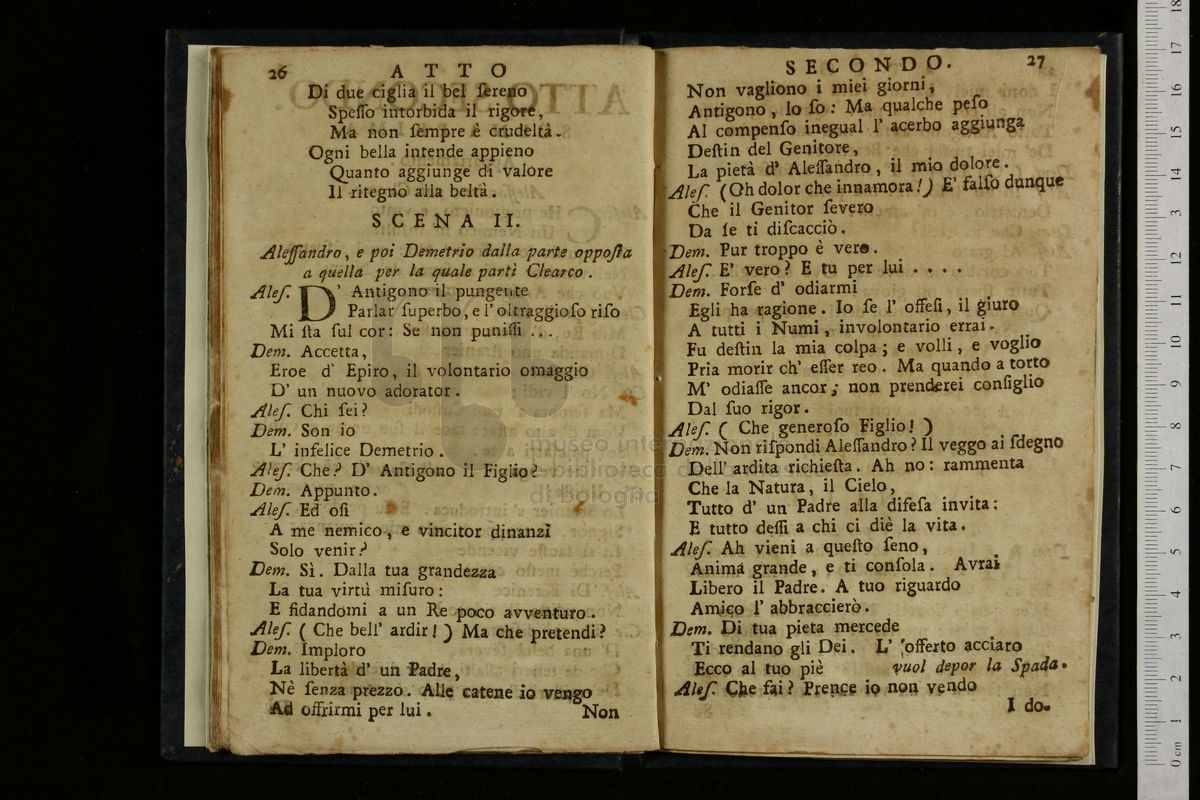 26 ATTO
Di due ciglia il bel ſereno
Speſſo intorbida il rigore,
Ma non ſempre è crudeltà.
Ogni bella intende appieno
Quanto aggiunge di valore
Il ritegno alla beltà.
SCENA II.
Aleſſandro, e poi Demetrio dalla parte oppoſta
a quella per la quale partì Clearco.
Aleſ. D' Antigono il pungente
Parlar ſuperbo, e l' oltraggioſo riſo
Mi ſta ſul cor: Se non puniſſi ...
Dem. Accetta,
Eroe d' Epiro, il volontario omaggio
D' un nuovo adorator.
Aleſ. Chi ſei?
Dem. Son io
L' infelice Demetrio.
Aleſ. Che? D' Antigono il Figlio?
Dem. Appunto.
Aleſ. Ed oſi
A me nemico, e vincitor dinanzi
Solo venir?
Dem. Sì. Dalla tua grandezza
La tua virtù miſuro:
E fidandomi a un Re poco avventuro.
Aleſ. ( Che bell' ardir! ) Ma che pretendi?
Dem. Imploro
La libertà d' un Padre,
Nè ſenza prezzo. Alle catene io vengo
Ad offrirmi per lui.
Non
SECONDO. 27
Non vagliono i miei giorni,
Antigono, lo ſo: Ma qualche peſo
Al compenſo inegual l' acerbo aggiunga
Deſtin del Genitore,
La pietà d' Aleſſandro, il mio dolore.
Aleſ. (Oh dolor che innamora!) E' falſo dunque
Che il Genitor ſevero
Da ſe ti diſcacciò.
Dem. Pur troppo è vero.
Aleſ. E' vero? E tu per lui ....
Dem. Forſe d' odiarmi
Egli ha ragione. Io ſe l' offeſi, il giuro
A tutti i Numi, involontario errai.
Fu deſtin la mia colpa; e volli, e voglio
Pria morir ch' eſſer reo. Ma quando a torto
M' odiaſſe ancor; non prenderei conſiglio
Dal ſuo rigor.
Aleſ. ( Che generoſo Figlio! )
Dem. Non riſpondi Aleſſandro? Il veggo ai ſdegno
Dell' ardita richieſta. Ah no: rammenta
Che la Natura, il Cielo,
Tutto d' un Padre alla difeſa invita:
E tutto deſſi a chi ci diè la vita.
Aleſ. Ah vieni a queſto ſeno,
Anima grande, e ti conſola. Avrai
Libero il Padre. A tuo riguardo
Amico l' abbraccierò.
Dem. Di tua pieta mercede
Ti rendano gli Dei. L' offerto acciaro
Ecco al tuo piè vuol depor la Spada.
Aleſ. Che fai? Prence io non vendo
I do-
museo internazionale
biblioteca
di bologna
0 cm 1 2 3 4 5 6 7 8 9 10 11 12 13 14 15 16 17 18